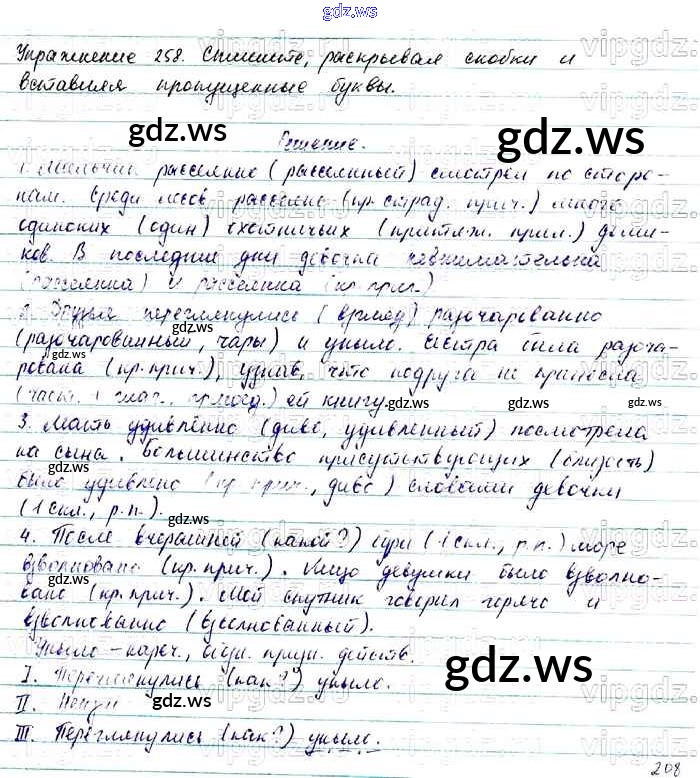 gdz.ws
Упражнение 258. Спишите, раскрывая скобки и
вставляя пропущенные буквы.
gdz.ws gdz.ws
Решение.
1. Мальчик рассеянно (рассеянный) смотрел по сторо-
нам. Среди лесов рассеяно (кр. страд. прич.) много
одиноких (один) охотничьих (притяж. прил.) доми-
ков. В последние дни девочка невнимательна
(рассеянна) и рассеянна (кр. прил.)
2. Друзья переглянулись (взгляд) разочарованно
(разочарованный, чары) и уныло. Сестра была разоча-
рована (кр. прич.), узнав, что подруга не принесла
gdz.ws
(част. + глаг.) ей книгу.
3. Мать удивлённо (диво, удивлённый) посмотрела
на сына. Большинство присутствующих (близость)
gdz.ws
было удивлено (кр. прич., диво) словами девочки
(1 скл., р.п.).
4. После вчерашней (какой?) бури (1 скл., р.п.) море
взволновано (кр. прич.). Лицо девушки было взволно-
вано (кр. прич.). Мой спутник говорил горячо и
взволнованно (взволнованный).
Уныло – нареч., обозн. призн. действ.
I. Переглянулись (как?) уныло.
II.
III. Переглянулись (как?) уныло.
gdz.ws gdz.ws
208